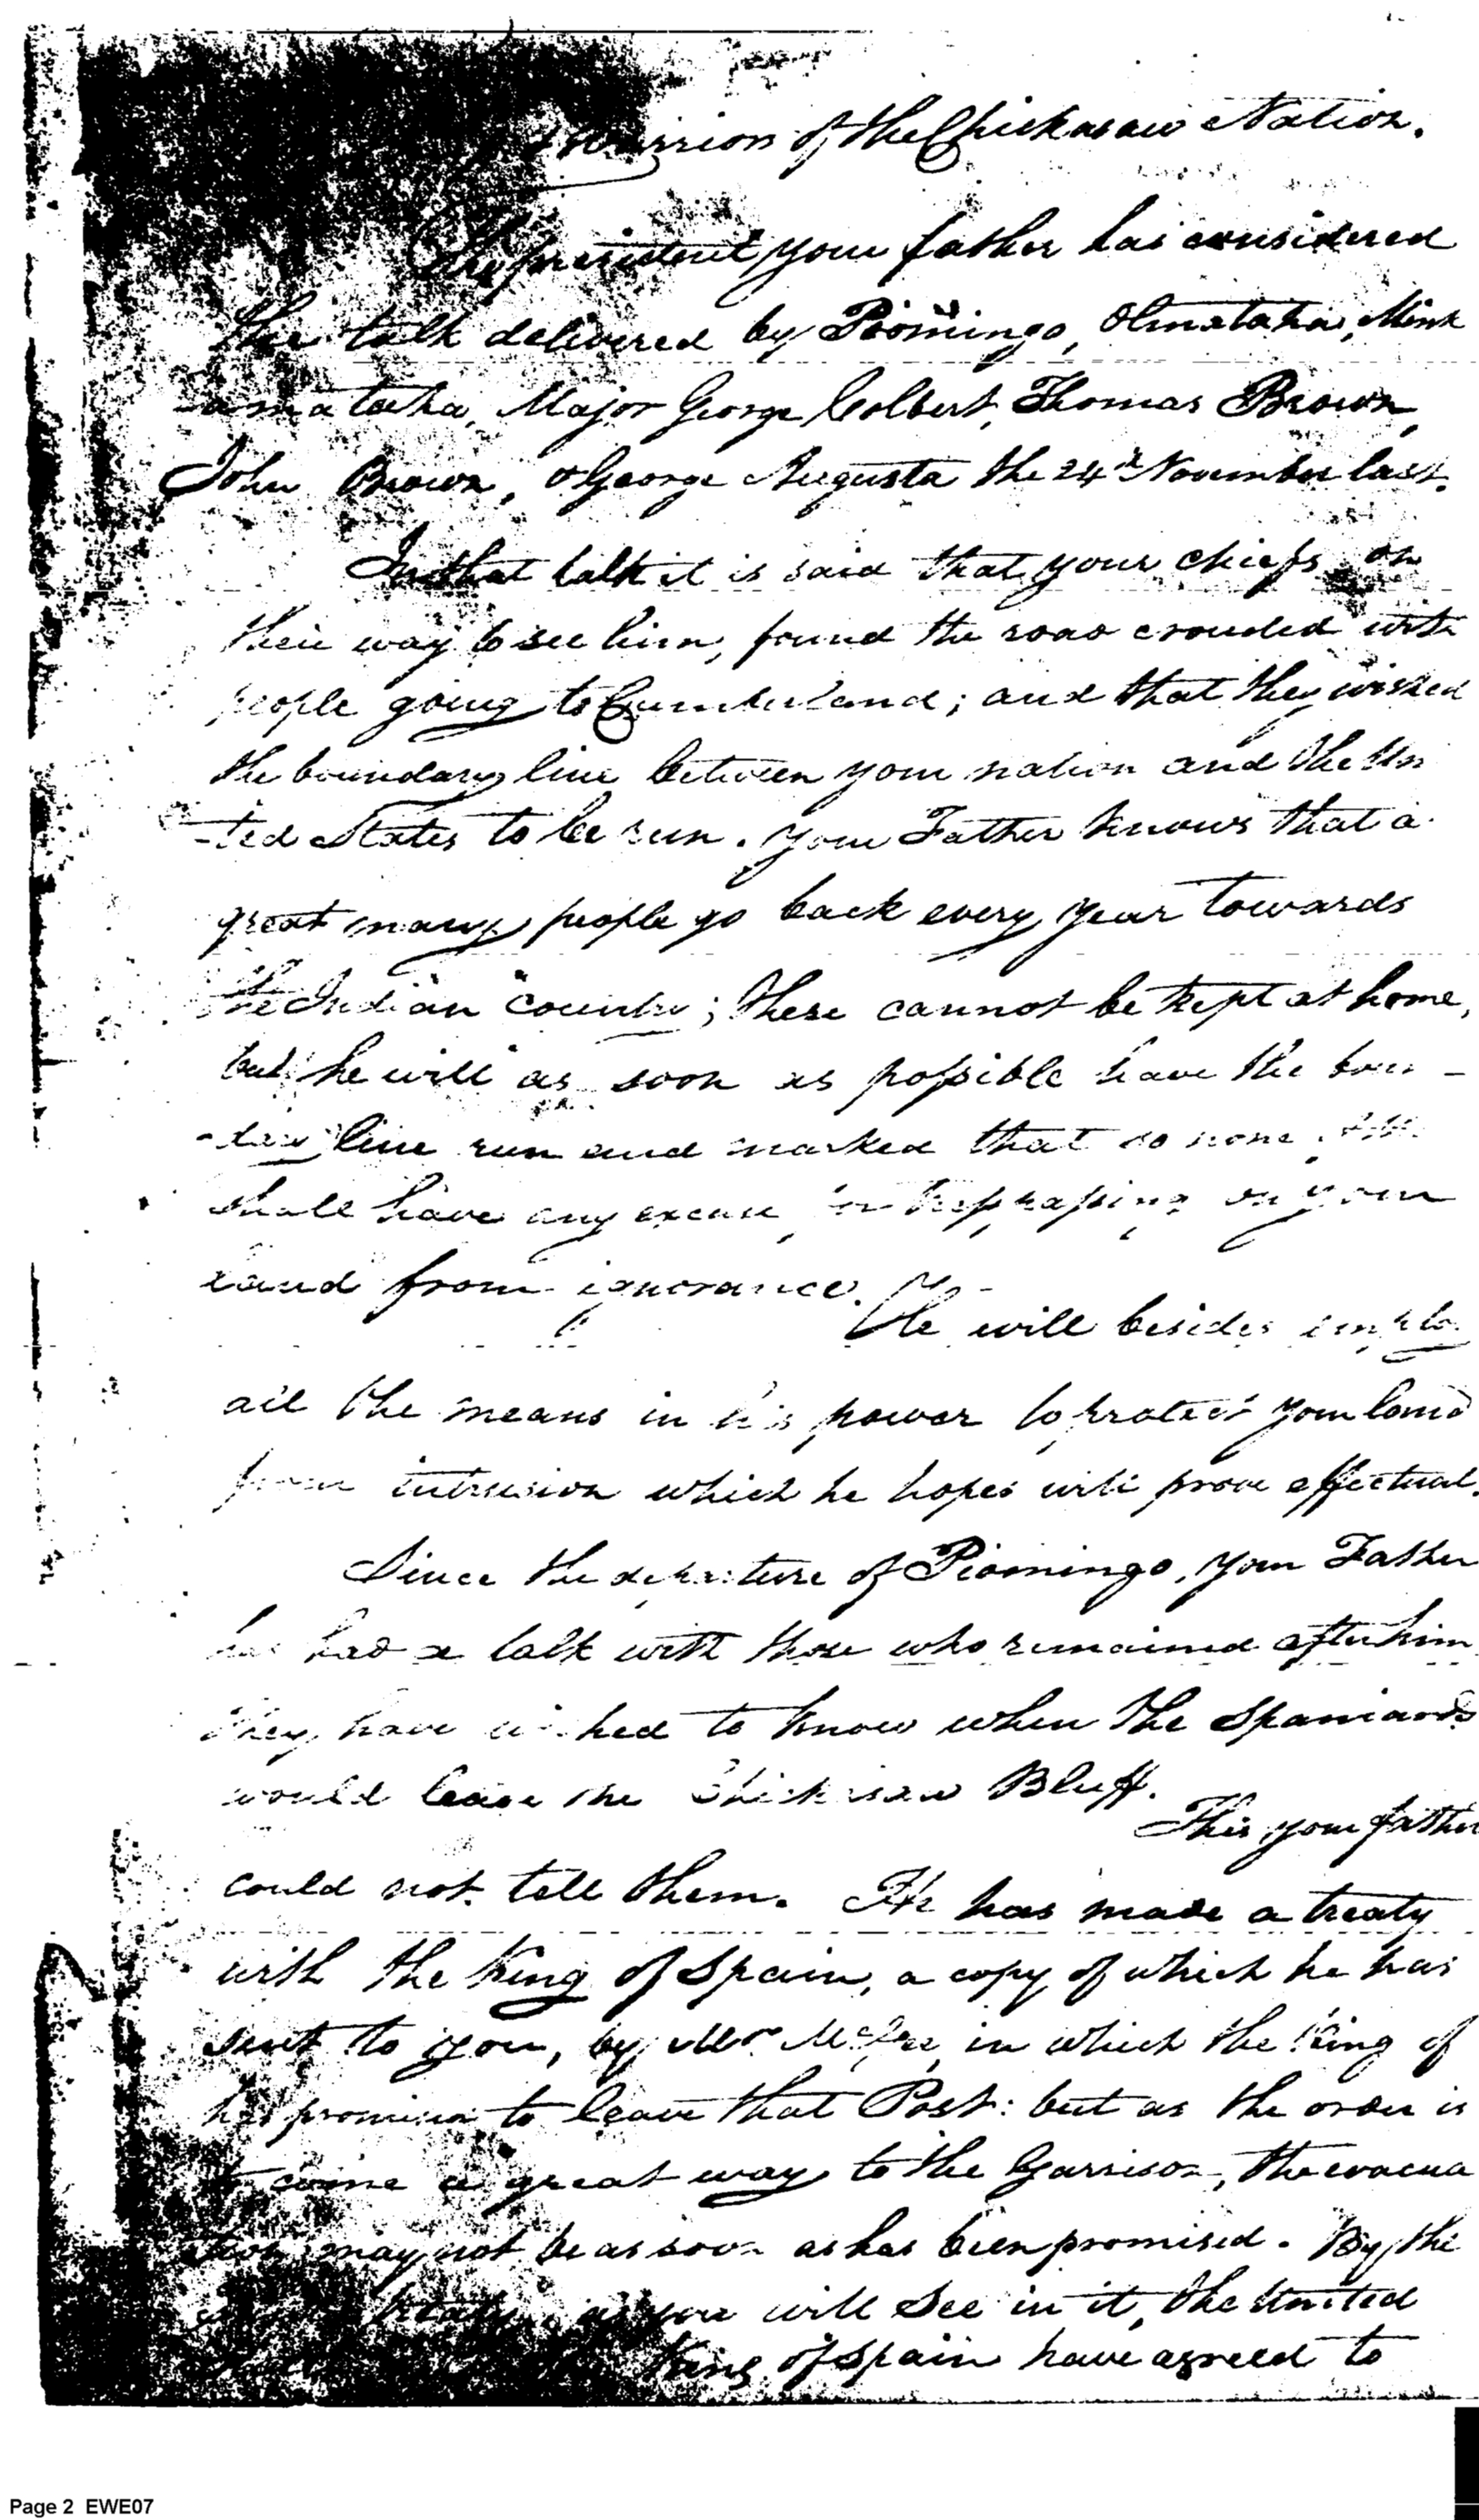 of the Chickasaw Nation.
The president your father has considered
the talk delivered by Piomingo, Olmataha, Mink
-amataha, Major George Colbert, Thomas Brown,
John Brown, & George Augusta the 24th November last.
In that talk it is said that your chiefs on
their way to see him, found the road crouded with
people going to Cumberland; and that they wished
the boundary line between your nation and the Uni
-ted States to be run. Your Father knows that a
great many people go back every year towards
the Indian country; these cannot be kept at home,
but he will as soon as possible have the boun-
-dary line run and marked that so none
shall have any excuse for trespassing on your
land from ignorance.
He will besides employ
all the means in his power to protect your land
from intrusion which he hopes will prove effectual.
Since the departure of Piomingo, your Father
has had a talk with those who remained after him
they have wished to know when the Spaniards
would leave the Chickasaw Bluff.
This your father
could not tell them. He has made a treaty
with the King of Spain, a copy of which he has
sent to you, by Mr. in which the King of
has promised to leave that Post: but as the order is
to come a great way to the Garrison, the evacua
-tion may not be as soon as has been promised. By the
treaty, as you will see in it, the United
King of Spain have agreed to
Page 2 EWE07